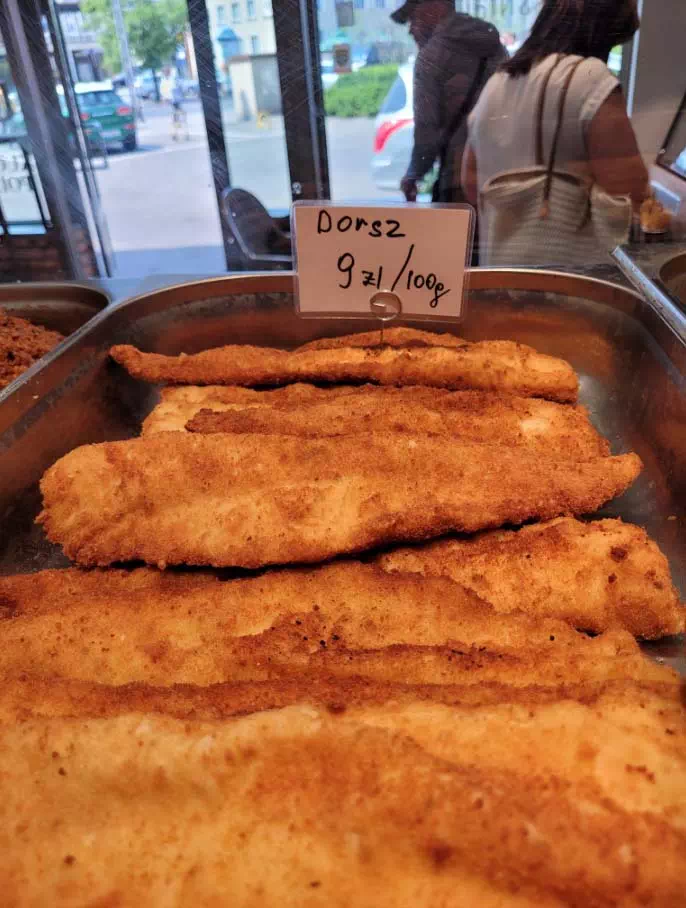 Dorsz
9 zł/100g